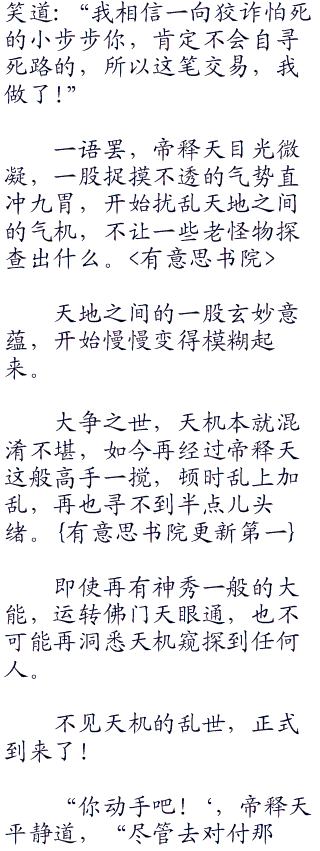 笑道：“我相信一向狡诈怕死
的小步步你，肯定不会自寻
死路的，所以这笔交易，我
做了！”
一语罢，帝释天目光微
凝，一股捉摸不透的气势直
冲九胃，开始扰乱天地之间
的气机，不让一些老怪物探
查出什么。<有意思书院>
天地之间的一股玄妙意
蕴，开始慢慢变得模糊起
来。
大争之世，天机本就混
淆不堪，如今再经过帝释天
这般高手一搅，顿时乱上加
乱，再也寻不到半点儿头
绪。{有意思书院更新第一}
即使再有神秀一般的大
能，运转佛门天眼通，也不
可能再洞悉天机窥探到任何
人。
不见天机的乱世，正式
到来了！
“你动手吧！‘，帝释天
平静道，“尽管去对付那